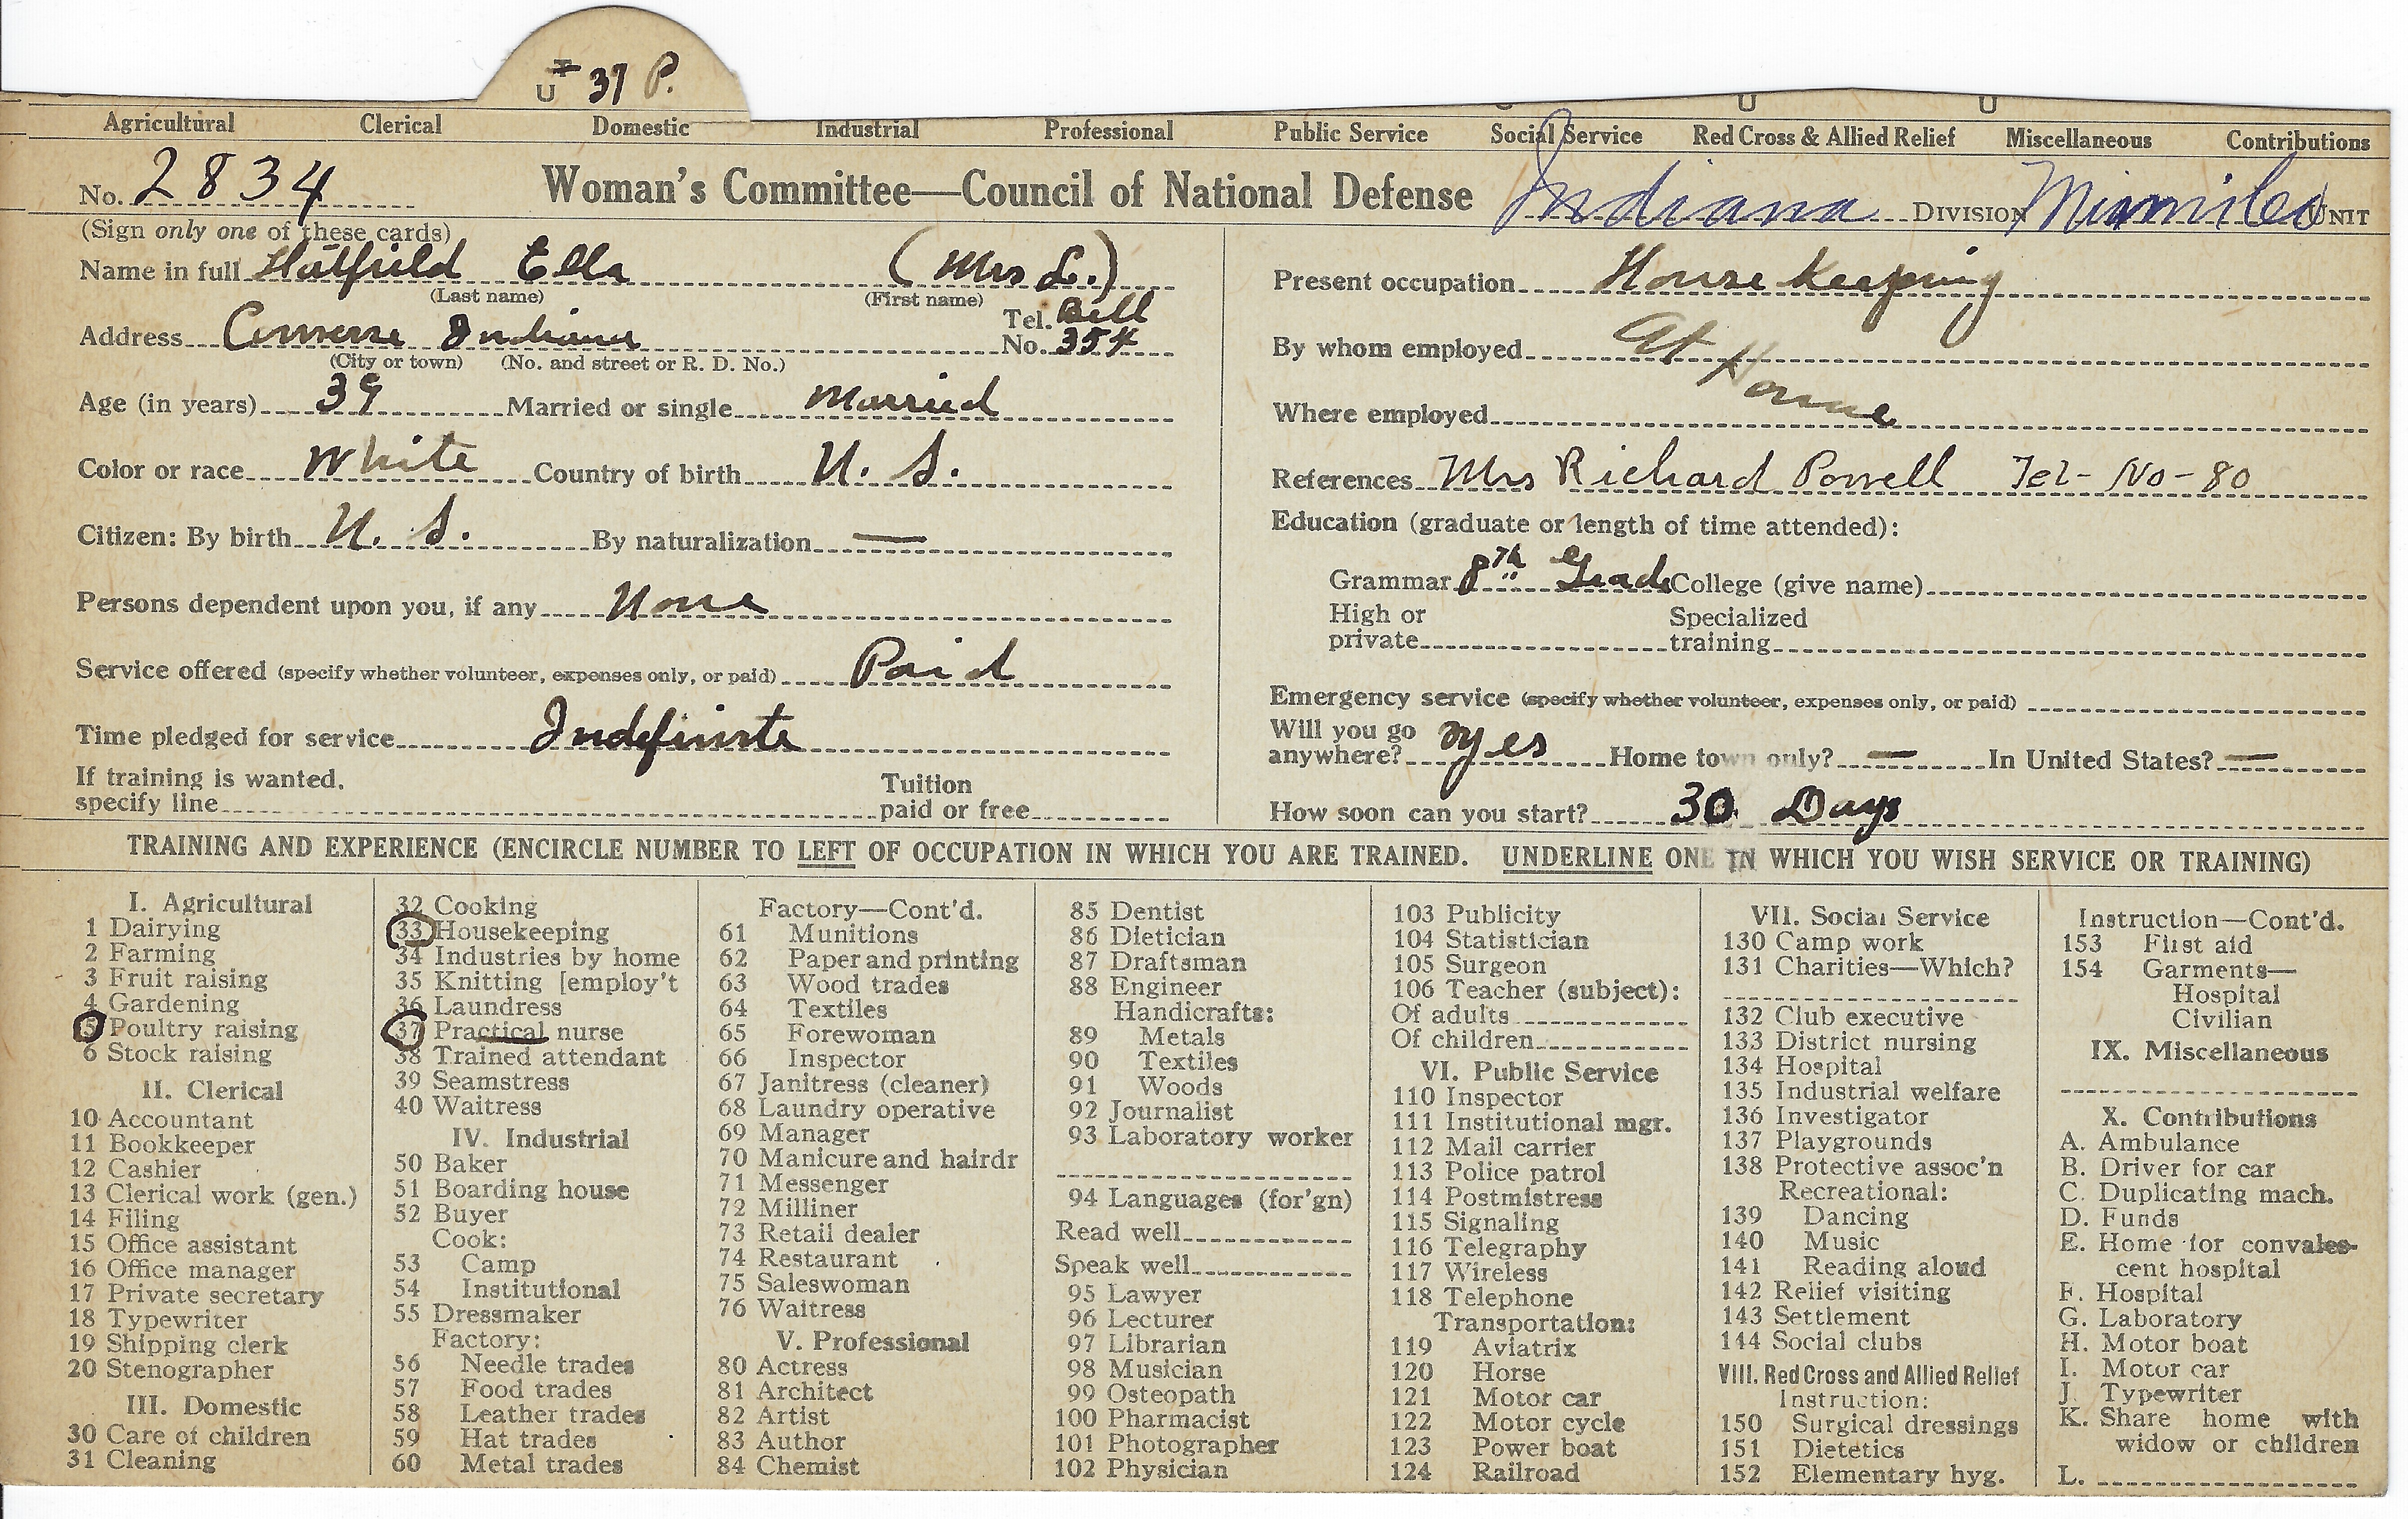 U 37 P.
U U
Agricultural Clerical Domestic Industrial Professional Public Service Social Service Red Cross & Allied Relief Miscellaneous Contributions
No. 2834 Woman's Committee—Council of National Defense Indiana DIVISION UNIT
(Sign only one of these cards)
Name in full Hatfield Ella (Mrs L.)
(Last name) (First name)
Address Converse Indiana Tel. No. Bell 354
(City or town) (No. and street or R. D. No.)
Age (in years) 39 Married or single Married
Color or race White Country of birth U. S.
Citizen: By birth U. S. By naturalization —
Persons dependent upon you, if any None
Service offered (specify whether volunteer, expenses only, or paid) Paid
Time pledged for service Indefinite
If training is wanted, specify line Tuition paid or free
Present occupation House Keeping
By whom employed At
Where employed Home
References Mrs Richard Powell Tel- No- 80
Education (graduate or length of time attended):
Grammar 8th Grade College (give name)
High or private Specialized training
Emergency service (specify whether volunteer, expenses only, or paid)
Will you go anywhere? yes Home town only? — In United States? —
How soon can you start? 30 Days
TRAINING AND EXPERIENCE (ENCIRCLE NUMBER TO LEFT OF OCCUPATION IN WHICH YOU ARE TRAINED. UNDERLINE ONE IN WHICH YOU WISH SERVICE OR TRAINING)
I. Agricultural
1 Dairying
2 Farming
3 Fruit raising
4 Gardening
5 Poultry raising
6 Stock raising
II. Clerical
10 Accountant
11 Bookkeeper
12 Cashier
13 Clerical work (gen.)
14 Filing
15 Office assistant
16 Office manager
17 Private secretary
18 Typewriter
19 Shipping clerk
20 Stenographer
III. Domestic
30 Care of children
31 Cleaning
32 Cooking
33 Housekeeping
34 Industries by home
35 Knitting [employ't
36 Laundress
37 Practical nurse
38 Trained attendant
39 Seamstress
40 Waitress
IV. Industrial
50 Baker
51 Boarding house
52 Buyer
Cook:
53 Camp
54 Institutional
55 Dressmaker
Factory:
56 Needle trades
57 Food trades
58 Leather trades
59 Hat trades
60 Metal trades
Factory—Cont'd.
61 Munitions
62 Paper and printing
63 Wood trades
64 Textiles
65 Forewoman
66 Inspector
67 Janitress (cleaner)
68 Laundry operative
69 Manager
70 Manicure and hairdr
71 Messenger
72 Milliner
73 Retail dealer
74 Restaurant
75 Saleswoman
76 Waitress
V. Professional
80 Actress
81 Architect
82 Artist
83 Author
84 Chemist
85 Dentist
86 Dietician
87 Draftsman
88 Engineer
Handicrafts:
89 Metals
90 Textiles
91 Woods
92 Journalist
93 Laboratory worker
94 Languages (for'gn)
Read well
Speak well
95 Lawyer
96 Lecturer
97 Librarian
98 Musician
99 Osteopath
100 Pharmacist
101 Photographer
102 Physician
103 Publicity
104 Statistician
105 Surgeon
106 Teacher (subject):
Of adults
Of children
VI. Public Service
110 Inspector
111 Institutional mgr.
112 Mail carrier
113 Police patrol
114 Postmistress
115 Signaling
116 Telegraphy
117 Wireless
118 Telephone
Transportation:
119 Aviatrix
120 Horse
121 Motor car
122 Motor cycle
123 Power boat
124 Railroad
VII. Social Service
130 Camp work
131 Charities—Which?
132 Club executive
133 District nursing
134 Hospital
135 Industrial welfare
136 Investigator
137 Playgrounds
138 Protective assoc'n
Recreational:
139 Dancing
140 Music
141 Reading aloud
142 Relief visiting
143 Settlement
144 Social clubs
VIII. Red Cross and Allied Relief
Instruction:
150 Surgical dressings
151 Dietetics
152 Elementary hyg.
Instruction—Cont'd.
153 First aid
154 Garments—
Hospital
Civilian
IX. Miscellaneous
X. Contributions
A. Ambulance
B. Driver for car
C. Duplicating mach.
D. Funds
E. Home for convales-
cent hospital
F. Hospital
G. Laboratory
H. Motor boat
I. Motor car
J. Typewriter
K. Share home with
widow or children
L.